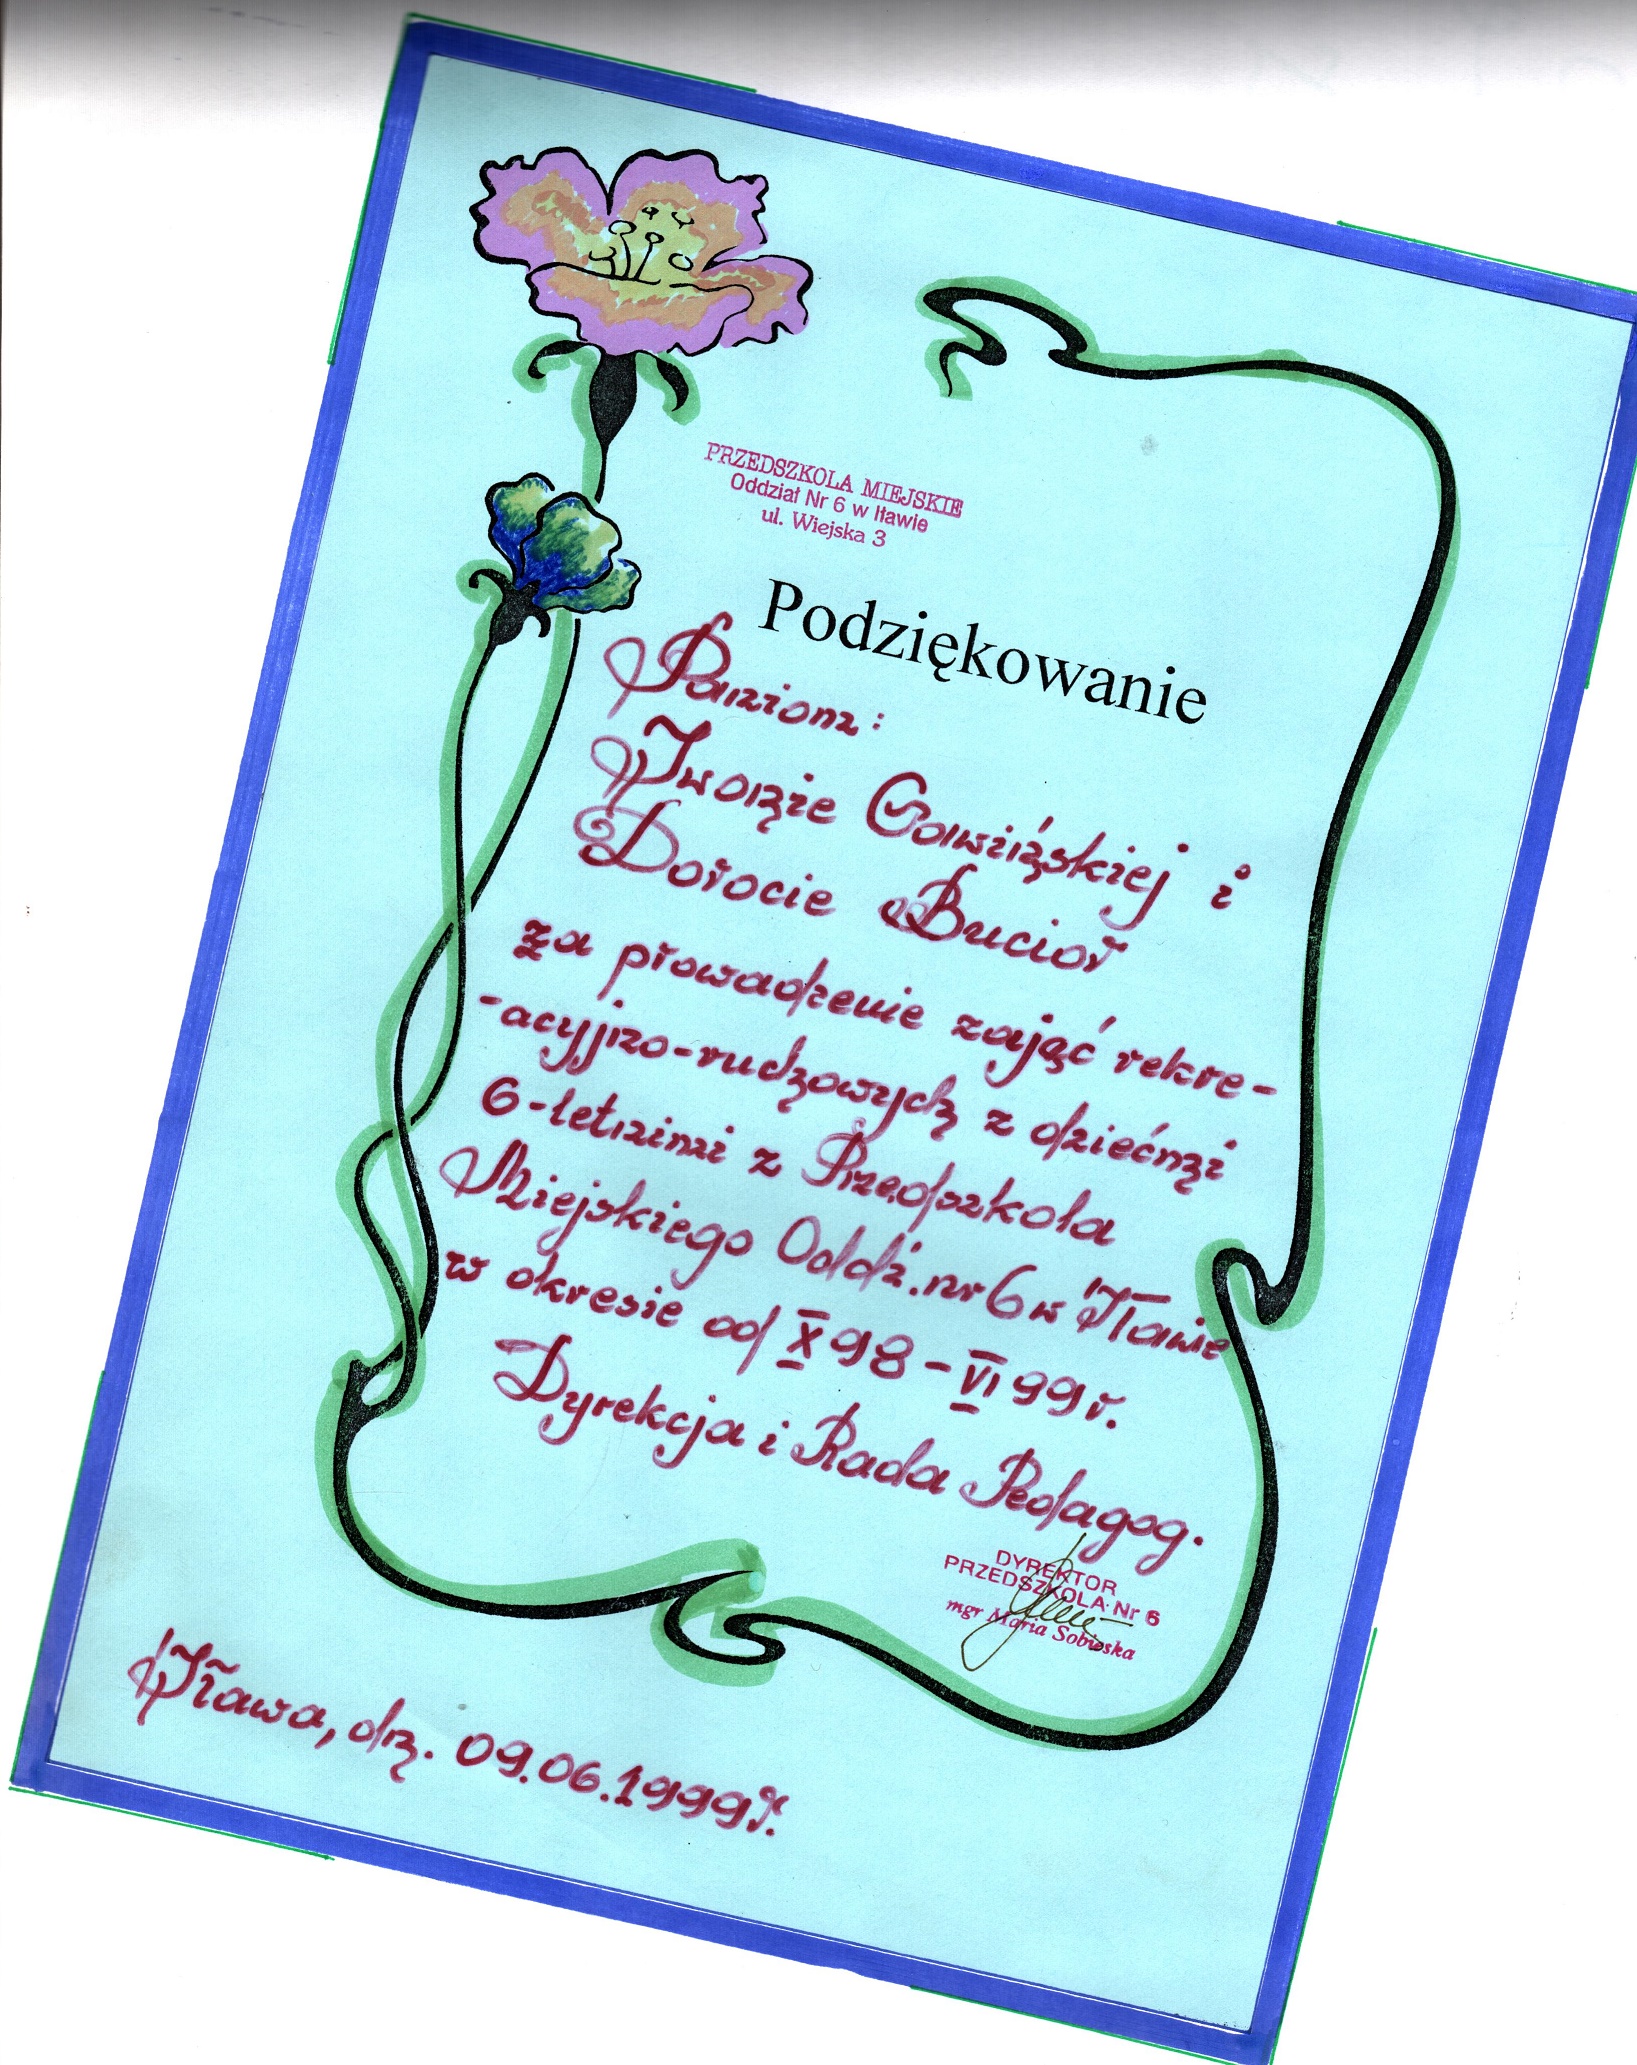 PRZEDSZKOLA MIEJSKIE
Oddział Nr 6 w Iławie
ul. Wiejska 3
Podziękowanie
Paniom:
Iwonie Gawińskiej i
Dorocie Bucior
za prowadzenie zajęć rekre-
-acyjno-ruchowych z dziećmi
6-letnimi z Przedszkola
Miejskiego Oddz. nr 6 w Iławie
w okresie od X 98 - VI 99 r.
Dyrekcja i Rada Pedagog.
DYREKTOR
PRZEDSZKOLA Nr 6
mgr Maria Sobieska
Iława, dn. 09.06.1999 r.